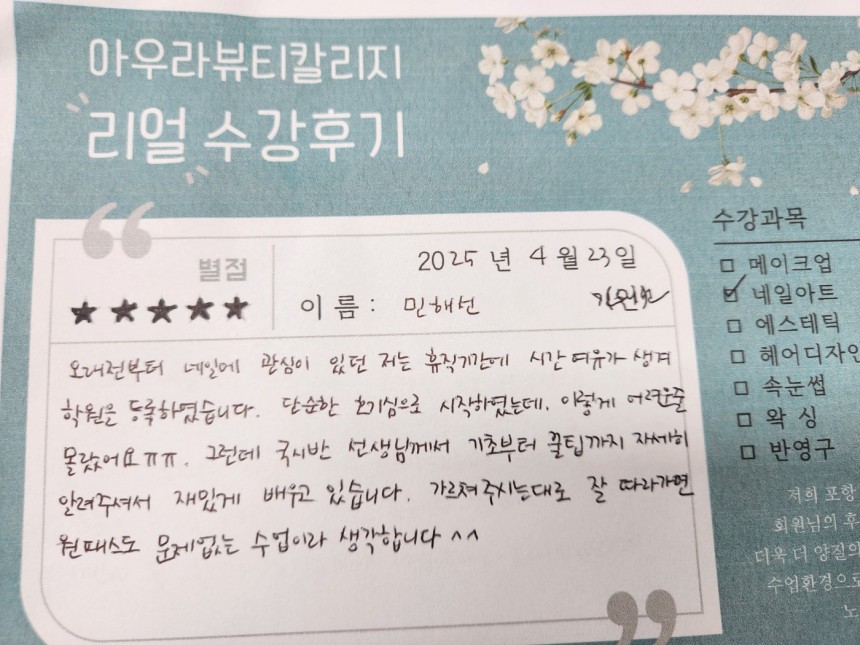 아우라뷰티칼리지
리얼 수강후기
별점
★★★★★
2025 년 4 월 23 일
이 름 : 민해선
오래전부터 네일에 관심이 있던 저는 휴직기간에 시간 여유가 생겨
학원을 등록하였습니다. 단순한 호기심으로 시작하였는데, 이렇게 어려운줄
몰랐어요ㅠㅠ. 그런데 국시반 선생님께서 기초부터 꿀팁까지 자세히
알려주셔서 재밌게 배우고 있습니다. 가르쳐주시는대로 잘 따라가면
원패스도 문제없는 수업이라 생각합니다 ^^
수강과목
□ 메이크업
☑ 네일아트
□ 에스테틱
□ 헤어디자인
□ 속눈썹
□ 왁 싱
□ 반영구
저희 포항
회원님의 후
더욱 더 양질의
수업환경으로
노